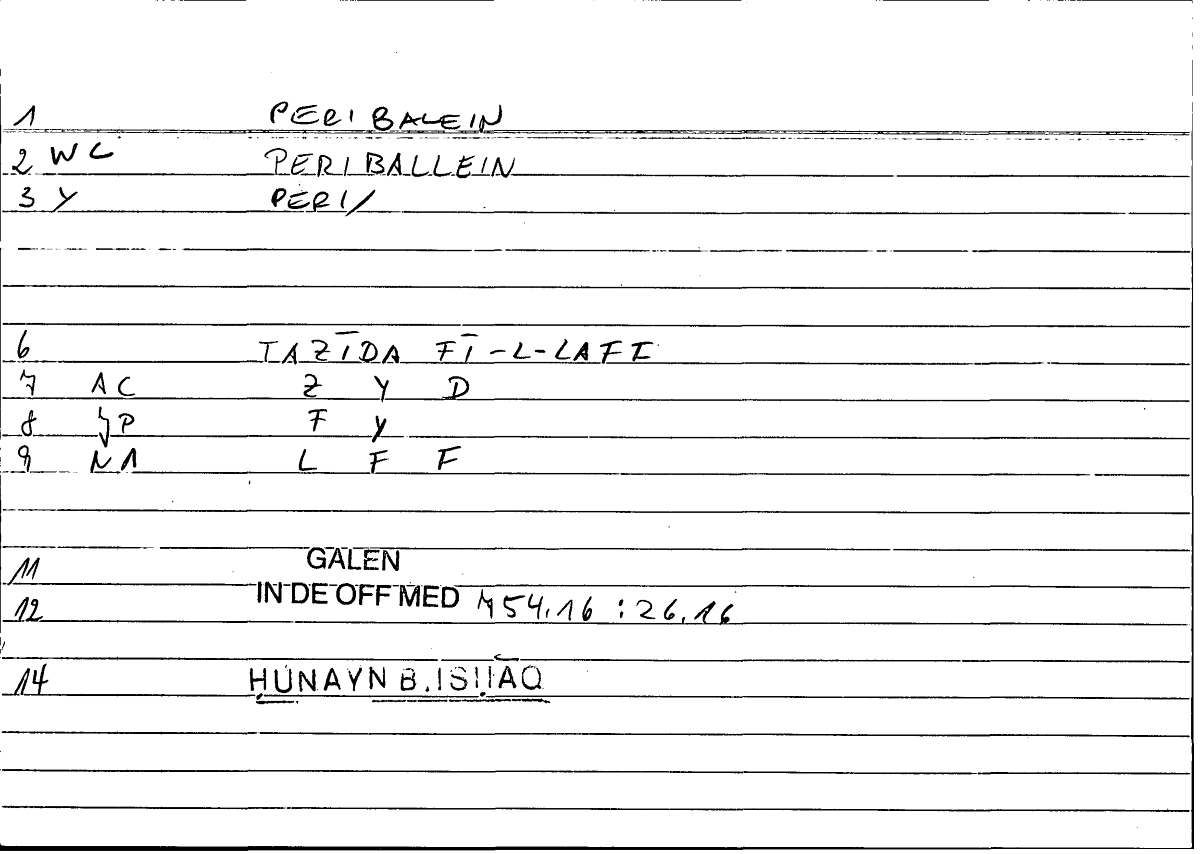 1 PERIBALEIN
2 WC PERIBALLEIN
3 Y PERI/
6 TAZĪDA FĪ-L-LAFI
7 AC Z Y D
8 ȷP F Y
9 N1 L F F
11 GALEN
12 IN DE OFF MED 754.16 : 26.16
14 ḤUNAYN B. ISḤĀQ